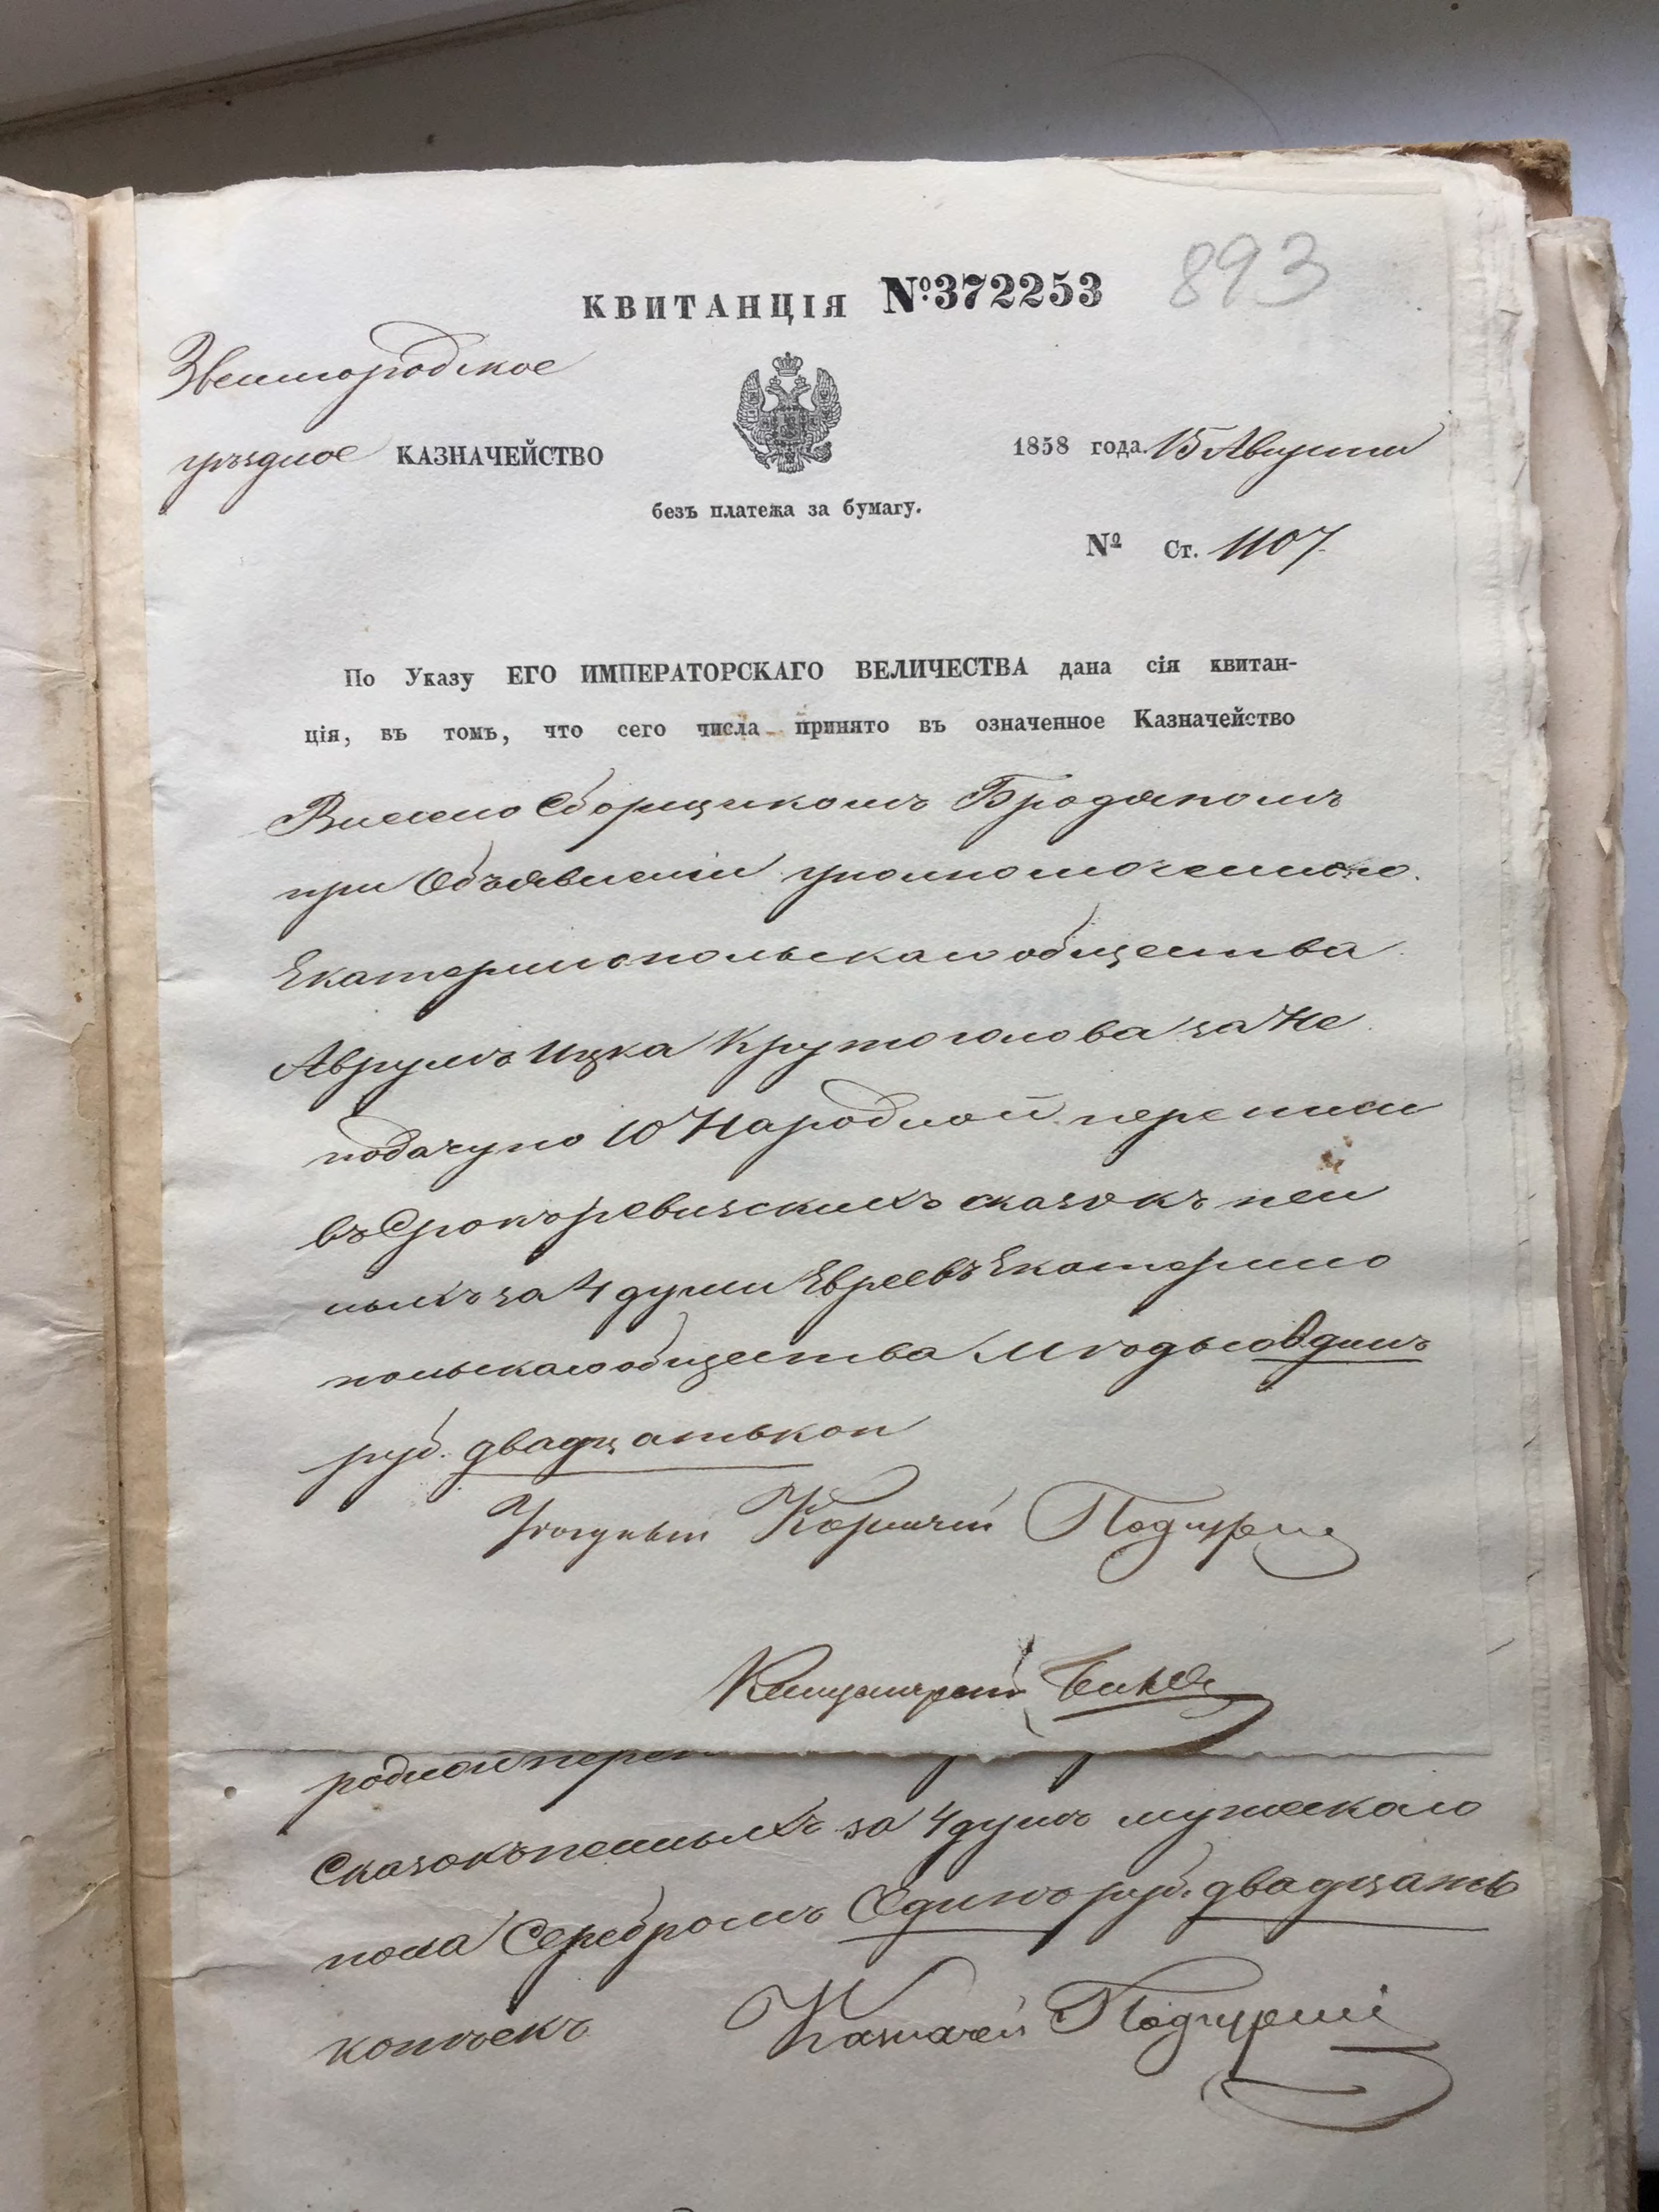 893
КВИТАНЦІЯ №372253
Звенигородское
уѣздное КАЗНАЧЕЙСТВО
1858 года. 15 Августа
безъ платежа за бумагу.
№ Ст. 1107
По Указу ЕГО ИМПЕРАТОРСКАГО ВЕЛИЧЕСТВА дана сія квитан-
ція, въ томъ, что сего числа принято въ означенное Казначейство
Внесено Сборщикомъ
при Объявленіи уполномоченного.
Екатеринопольскаго общества
Аврумъ Ицка Крутоголова за Не
подачу по 10 Народной переписи
въ Срокъ ревизскихъ сказокъ пен
ныхъ за 4 души Евреевъ Екатерино
польскаго общества Одинъ
руб. двадцать коп
Подгурскі
родной переп
Сказокъ пенныхъ за 4 душъ мужескаго
пола Серебромъ Одинъ руб. двадцать
копѣекъ
Казначей Подгурскі